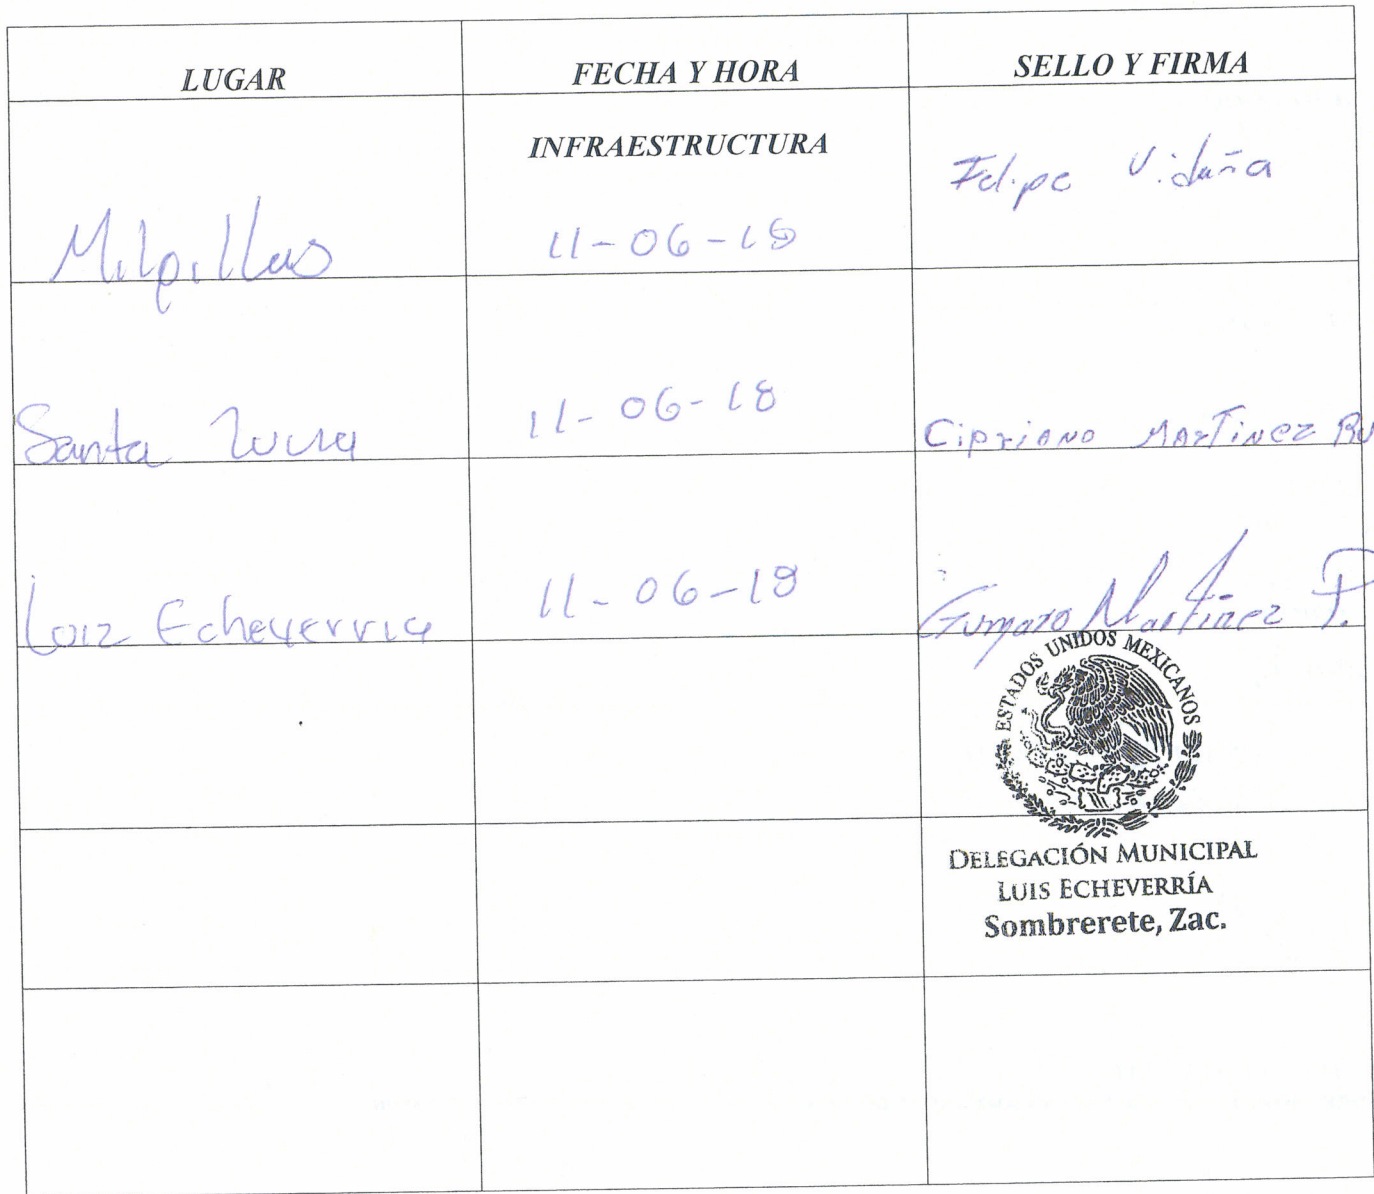 LUGAR FECHA Y HORA SELLO Y FIRMA
INFRAESTRUCTURA
Milpillas 11-06-18 Felipe Viduña
Santa Lucia 11-06-18 Cipriano Martinez
Loiz Echeverria 11-06-18 Gumaro Martinez P.
ESTADOS UNIDOS MEXICANOS
DELEGACIÓN MUNICIPAL
LUIS ECHEVERRÍA
Sombrerete, Zac.